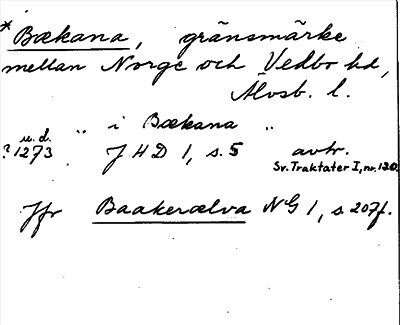 * Bækana, gränsmärke
mellan Norge och Vedbo hd,
Älvsb. l.
" i Bækana "
u.d.
?1273 JHD 1, s. 5 avtr.
Sv. Traktater I, nr. 120.
Jfr Baakerælva NG 1, s. 207f.